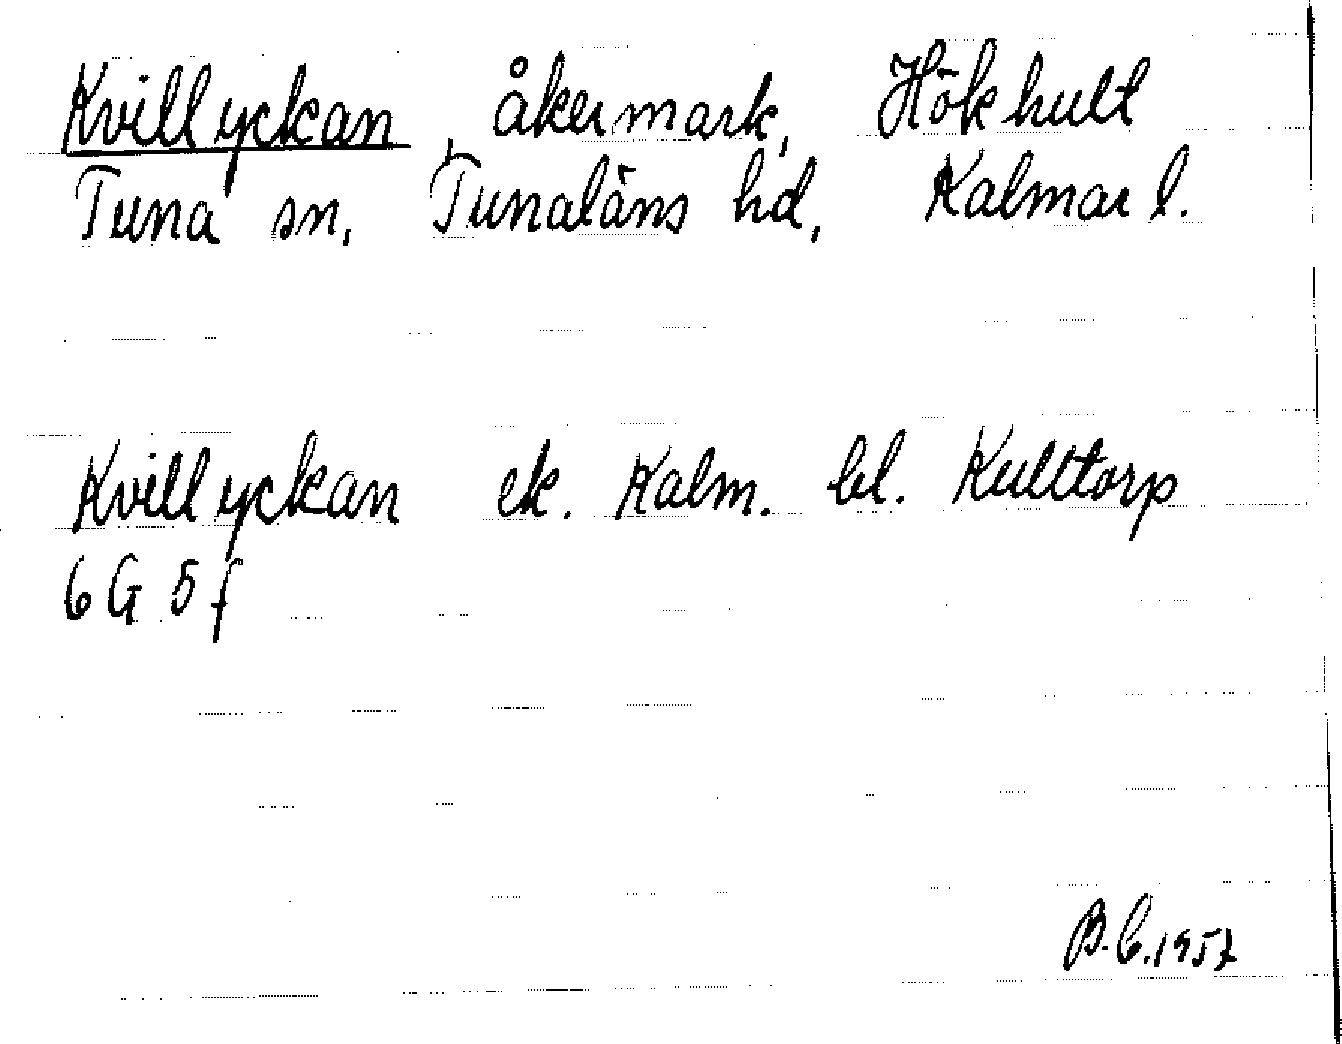 Kvillyckan, åkermark, Hökhult
Tuna sn, Tunaläns hd, Kalmar l.
Kvillyckan ek. Kalm. bl. Kulltorp
6 G 5 f
B.C. 1957